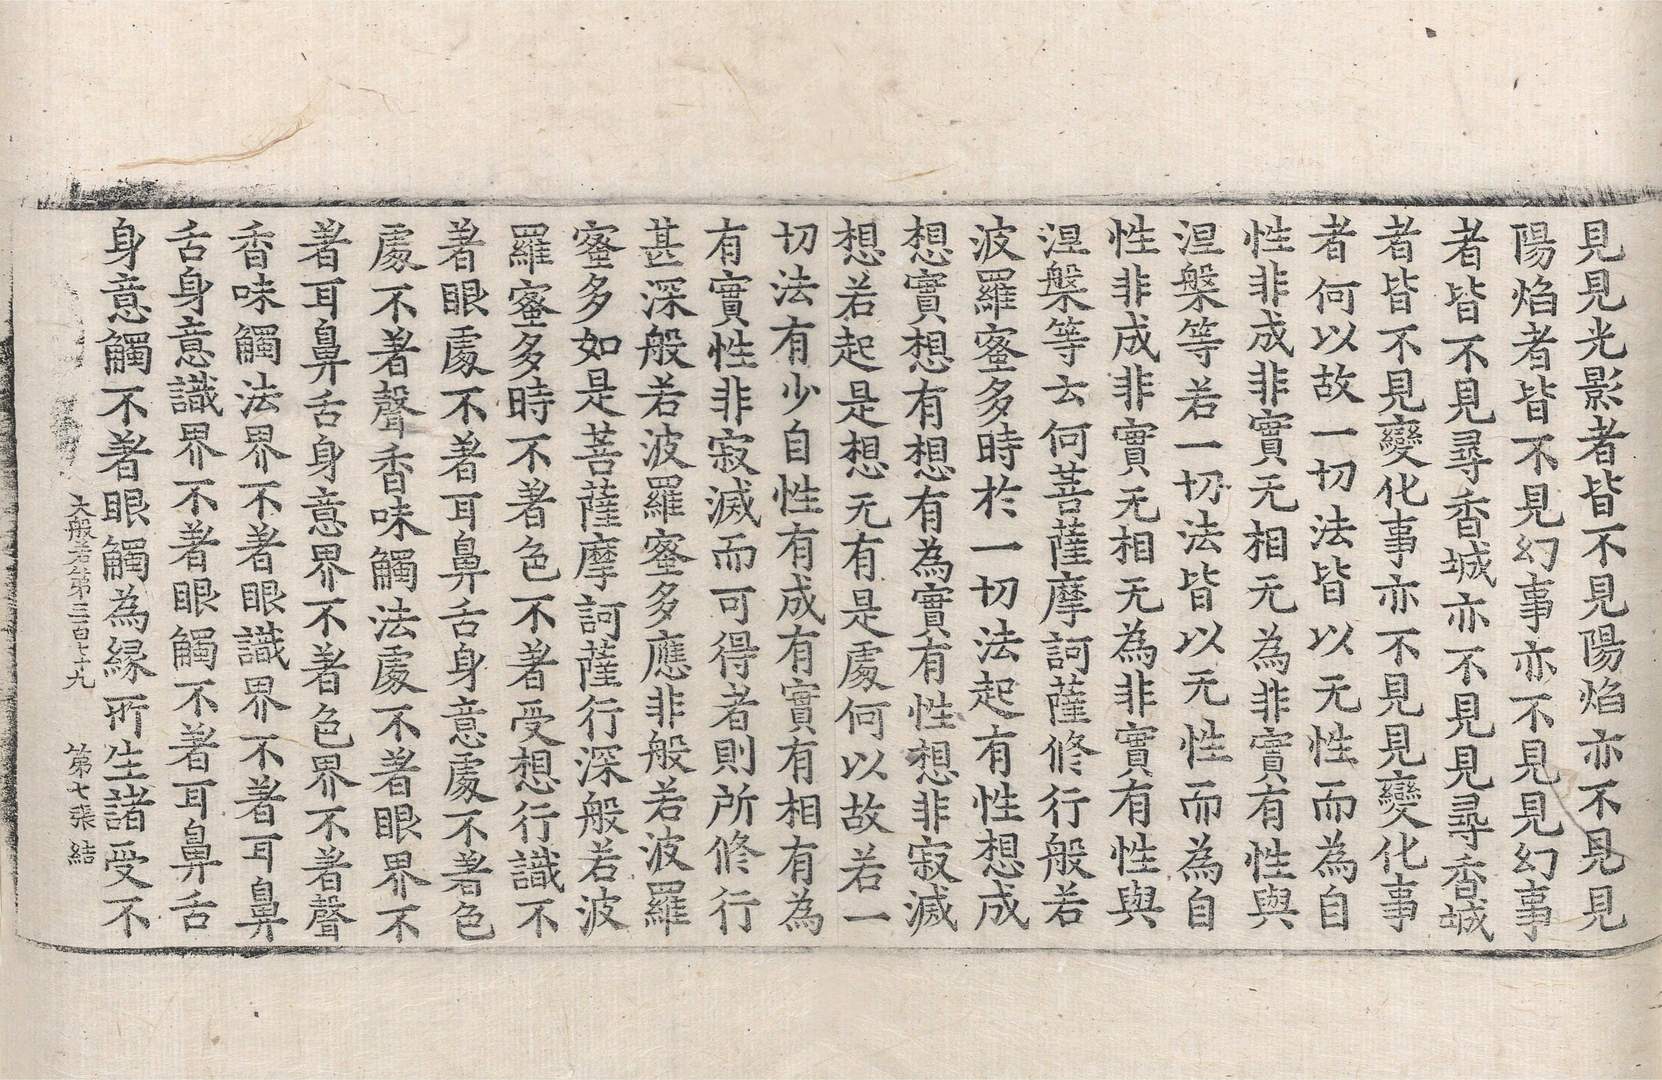 見見光影者皆不見陽焰亦不見見
陽焰者皆不見幻事亦不見見幻事
者皆不見尋香城亦不見見尋香城
者皆不見變化事亦不見見變化事
者何以故一切法皆以无性而為自
性非成非實无相无為非實有性與
涅槃等若一切法皆以无性而為自
性非成非實无相无為非實有性與
涅槃等云何菩薩摩訶薩修行般若
波羅蜜多時於一切法起有性想成
想實想有想有為實有性想非寂滅
想若起是想无有是處何以故若一
切法有少自性有成有實有相有為
有實性非寂滅而可得者則所修行
甚深般若波羅蜜多應非般若波羅
蜜多如是菩薩摩訶薩行深般若波
羅蜜多時不著色不著受想行識不
著眼處不著耳鼻舌身意處不著色
處不著聲香味觸法處不著眼界不
著耳鼻舌身意界不著色界不著聲
香味觸法界不著眼識界不著耳鼻
舌身意識界不著眼觸不著耳鼻舌
身意觸不著眼觸為緣所生諸受不
大般若第三百七十九 第七張 結